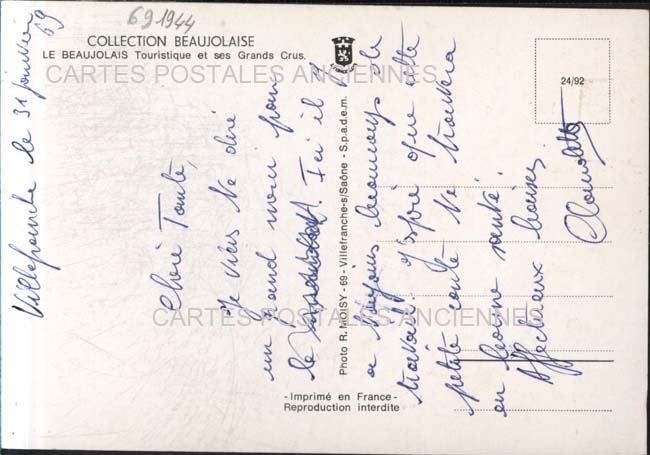 691944
COLLECTION BEAUJOLAISE
LE BEAUJOLAIS Touristique et ses Grands Crus.
CARTES POSTALES ANCIENNES
24/92
Photo R. MOISY - 69 - Villefranche-s/Saône - S.p.a.d.e.m.
CARTES POSTALES ANCIENNES
- Imprimé en France -
Reproduction interdite
Villefranche le 31 janvier
69
Chère Tante,
Je viens te dire
un grand merci pour
le Ici il y
a toujours beaucoup de
travail. J'espère que cette
petite carte te trouvera
en bonne santé.
Affectueux baisers.